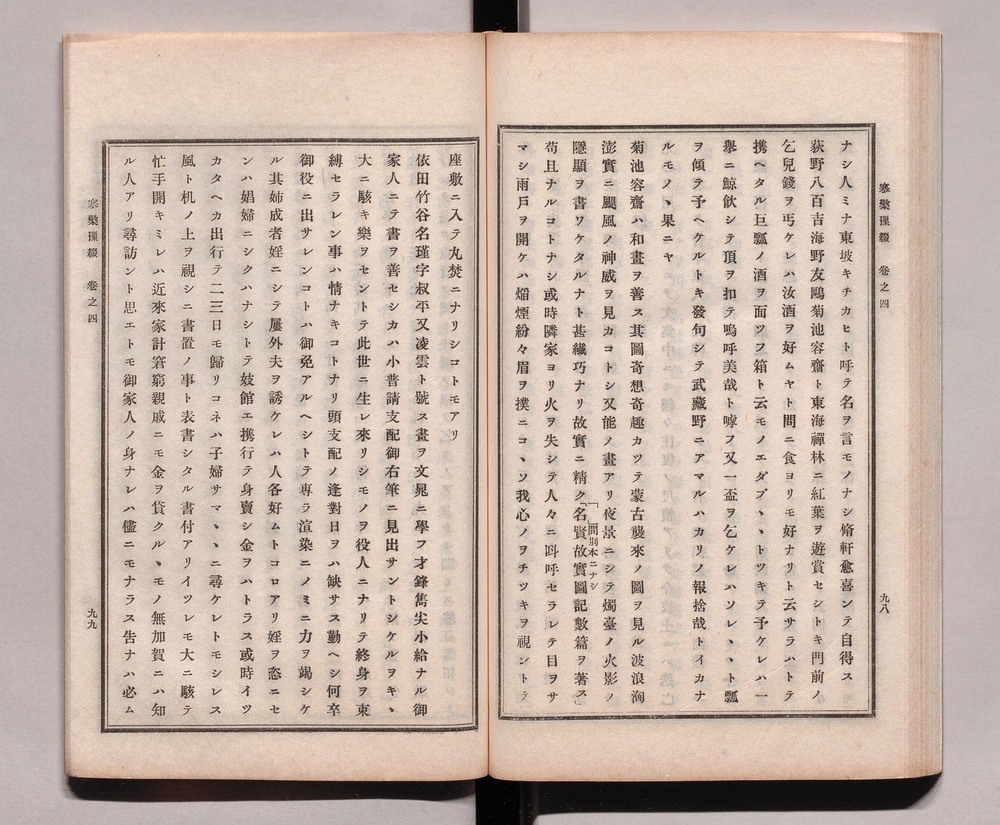 寒檠璅綴　卷之四
九八
ナシ人ミナ東坡キチカヒト呼テ名ヲ言モノナシ脩軒愈喜ンテ自得ス
荻野八百吉海野友鷗菊池容齋ト東海禪林ニ紅葉ヲ遊賞セシトキ門前ノ
乞兒錢ヲ丐ケレハ汝酒ヲ好ムヤト問ニ食ヨリモ好ナリト云サラハトテ
携ヘタル巨瓢ノ酒ヲ面ツフ箱ト云モノエダブヽヽトツキテ予ケレハ一
擧ニ鯨飮シテ頂ヲ扣テ嗚呼美哉ト嘑フ又一盃ヲ乞ケレハソレヽヽト瓢
ヲ傾テ予ヘケルトキ發句シテ武藏野ニアマルハカリノ報捨哉トイカナ
ルモノヽ果ニヤ
菊池容齋ハ和畫ヲ善ス其圖奇想奇趣カツテ蒙古襲來ノ圖ヲ見ル波浪洶
澎實ニ颶風ノ神威ヲ見カコトシ又能ノ畫アリ夜景ニシテ燭臺ノ火影ノ
隱顯ヲ書ワケタルナト甚纎巧ナリ故實ニ精ク「名賢故實圖記數篇ヲ著ス
「　間別本ニナシ
苟且ナルコトナシ或時隣家ヨリ火ヲ失シテ人々ニ叫呼セラレテ目ヲサ
マシ雨戸ヲ開ケハ熖煙紛々眉ヲ撲ニコヽソ我心ノヲチツキヲ視ントテ
座敷ニ入テ丸焚ニナリシコトモアリ
依田竹谷名瑾字叔平又凌雲ト號ス畫ヲ文晁ニ學フ才鋒雋尖小給ナル御
家人ニテ書ヲ善セシカハ小普請支配御右筆ニ見出サントシケルヲキヽ
大ニ駭キ樂ヲセントテ此世ニ生レ來リシモノヲ役人ニナリテ終身ヲ束
縛セラレン事ハ情ナキコトナリ頭支配ノ逢對日ヲハ缺サス勤ヘシ何卒
御役ニ出サレンコトハ御免アルヘシトテ專ラ渲染ニノミニ力ヲ竭シケ
ル其姉成者婬ニシテ屢外夫ヲ誘ケレハ人各好ムトコロアリ婬ヲ恣ニセ
ンハ娼婦ニシクハナシトテ妓館エ携行テ身賣シ金ヲハトラス或時イツ
カタヘカ出行テ二三日モ歸リコネハ子婦サマヽヽニ尋ケレトモシレス
風ト机ノ上ヲ視シニ書置ノ事ト表書シタル書付アリイツレモ大ニ駭テ
忙手開キミレハ近來家計窘窮親戚ニモ金ヲ貸クルヽモノ無加賀ニハ知
ル人アリ尋訪ント思エトモ御家人ノ身ナレハ儘ニモナラス告ナハ必ム
寒檠璅綴　卷之四
九九